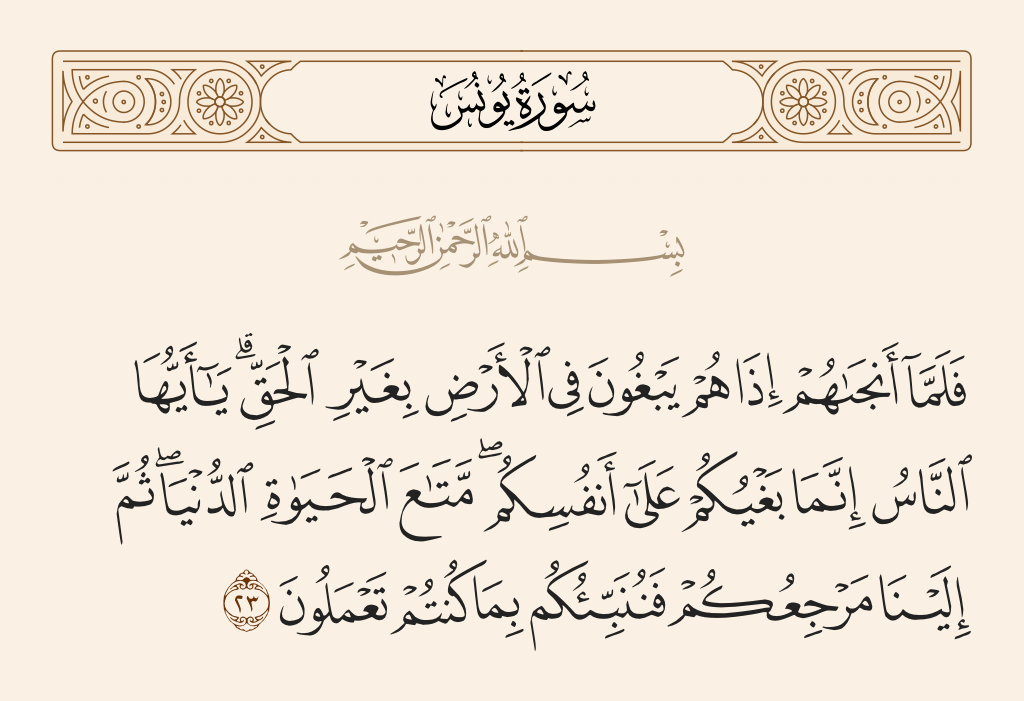 سُورَةُ يُونُسَ
بِسْمِ ٱللَّهِ ٱلرَّحْمَٰنِ ٱلرَّحِيمِ
فَلَمَّآ أَنجَىٰهُمْ إِذَا هُمْ يَبْغُونَ فِى ٱلْأَرْضِ بِغَيْرِ ٱلْحَقِّ ۗ يَٰٓأَيُّهَا
ٱلنَّاسُ إِنَّمَا بَغْيُكُمْ عَلَىٰٓ أَنفُسِكُم ۖ مَّتَٰعَ ٱلْحَيَوٰةِ ٱلدُّنْيَا ۖ ثُمَّ
إِلَيْنَا مَرْجِعُكُمْ فَنُنَبِّئُكُم بِمَا كُنتُمْ تَعْمَلُونَ ٢٣